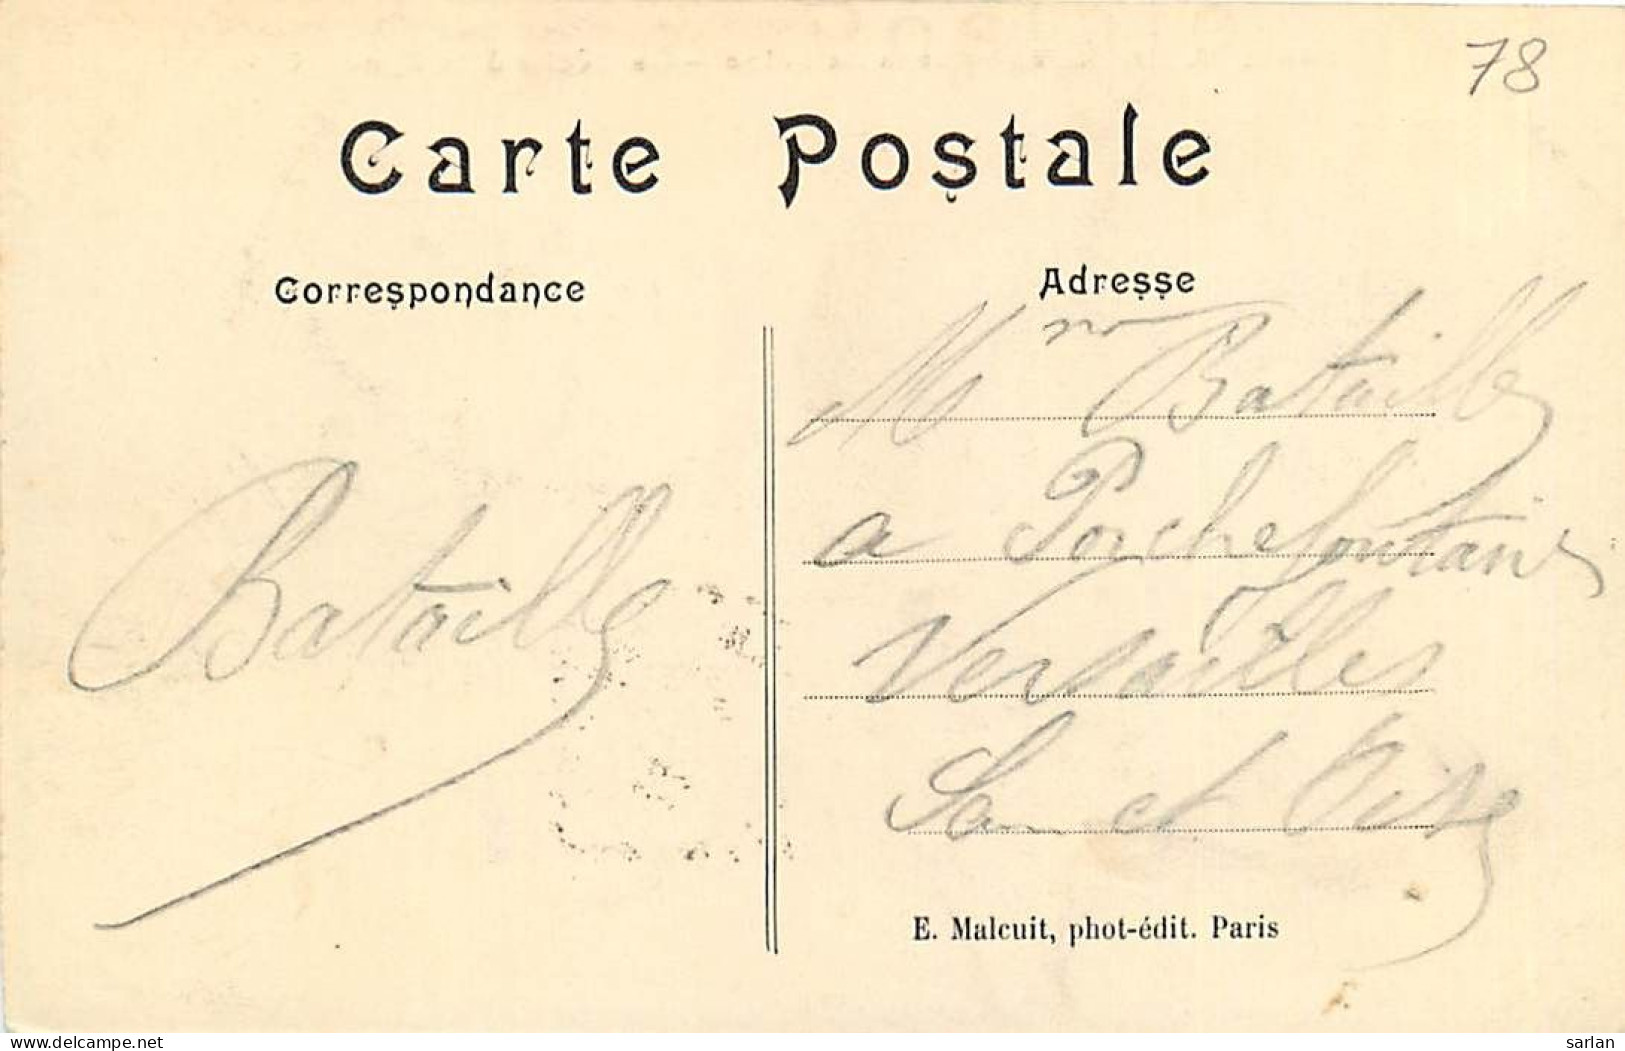 78
Carte Postale
Correspondance
Adresse
Mme Bataille
a Porchefontaine
Versailles
Sein et Oise
Bataille
E. Malcuit, phot-édit. Paris
www.delcampe.net
sarlan